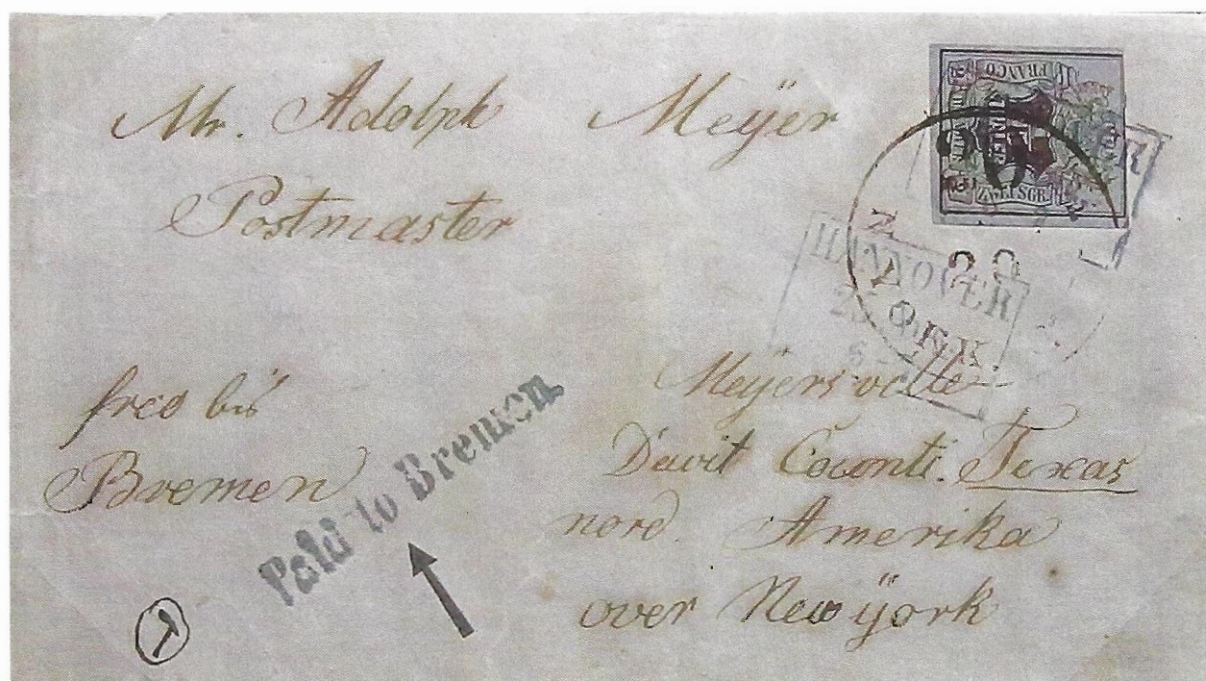 Mr. Adolph Meÿer
Postmaster
FRANCO
HANNOVER
N. YORK
20
frco bis
Bremen
Paid to Bremen.
Meÿersville
Dewit Coconti. Texas
nord. Amerika
over New ÿork